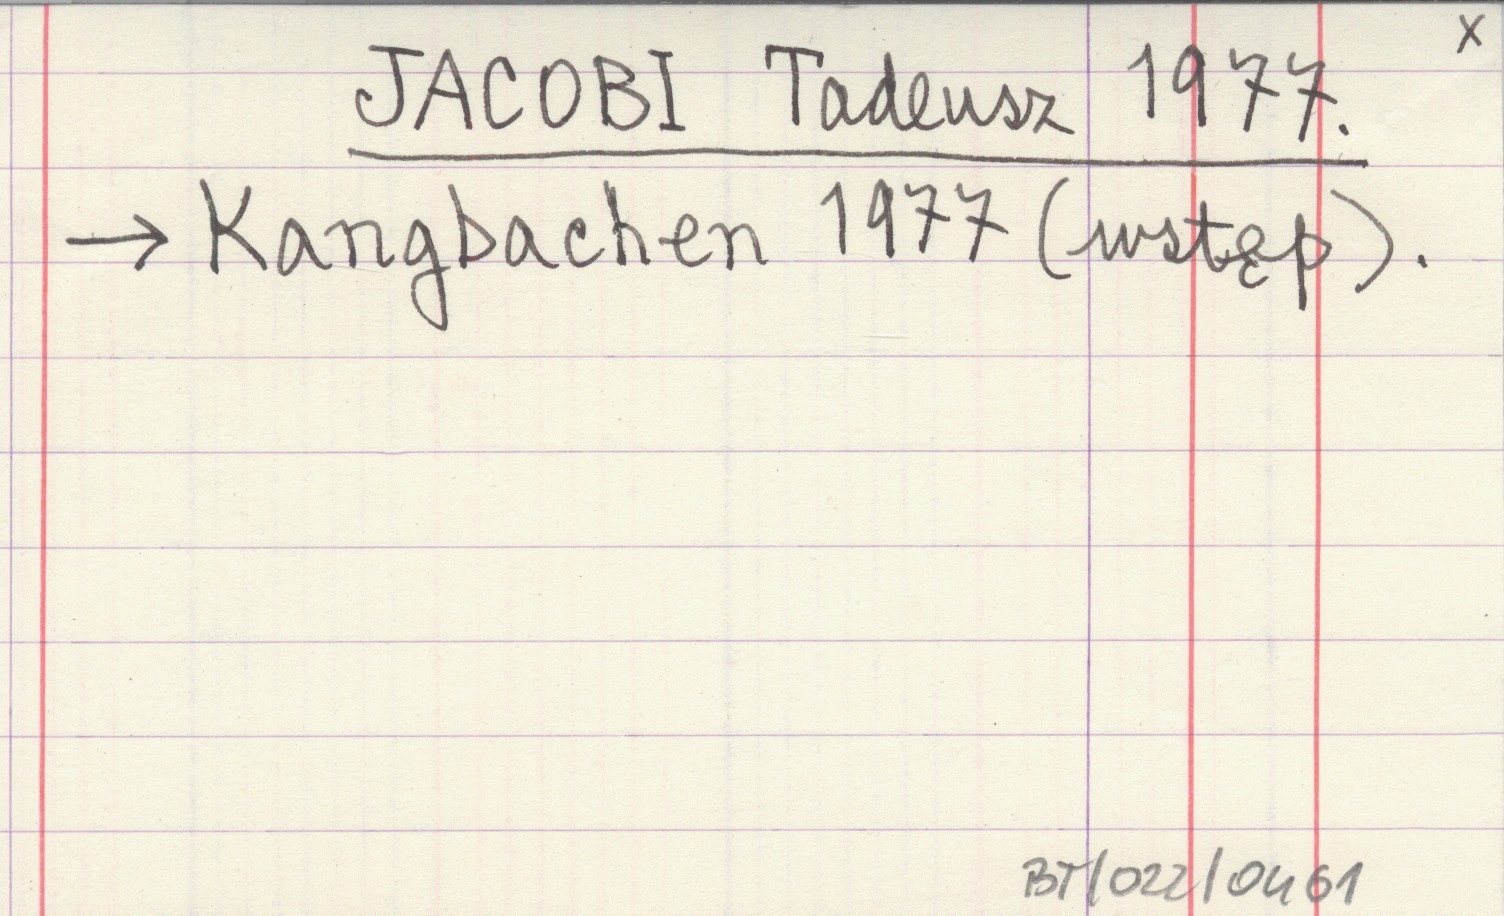 x
JACOBI Tadeusz 1977.
→ Kangbachen 1977 (wstęp).
BT/022/0461